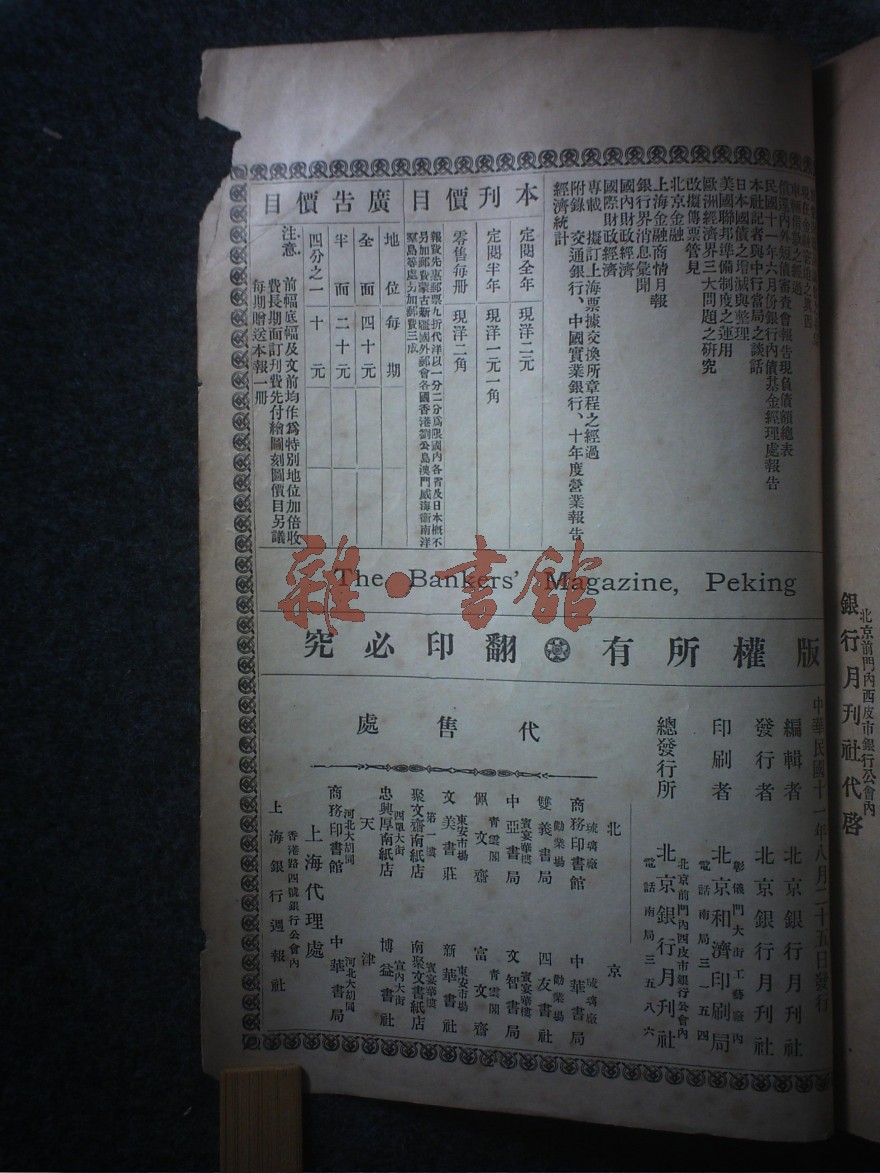 民國十一年六月份銀行內債基金經理處報告
本社記者與中行當局之談話
日本國債之增減與整理
美國聯邦準備制度之運用
歐洲經濟界三大問題之研究
改擬傳票管見
北京金融
上海金融商情月報
銀行界消息彙聞
國內財政經濟
國際財政經濟
專載 擬訂上海票據交換所章程之經過
附錄 交通銀行、中國實業銀行、十年度營業報告
經濟統計
本刊價目
定閱全年 現洋二元
定閱半年 現洋一元一角
零售每冊 現洋二角
報費先惠郵票九折代洋以一分二分爲限國內各省及日本概不
另加郵費蒙古新疆國外郵會各國香港劉公島澳門威海衛南洋
羣島等處另加郵費三成
廣告價目
地位每期
全面四十元
半面二十元
四分之一十元
注意
前幅底幅及文前均作爲特別地位加倍收
費長期面訂刊費先付繪圖刻圖價目另議
每期贈送本報一冊
The Bankers' Magazine, Peking
版權所有 翻印必究
中華民國十一年八月二十五日發行
編輯者 北京銀行月刊社
發行者 北京銀行月刊社
印刷者 北京和濟印刷局
彰儀門大街工藝廠內
電話南局三一五四
總發行所 北京銀行月刊社
北京前門內西皮市銀行公會內
電話南局三五八六
代售處
北京
琉璃廠 商務印書館
琉璃廠 中華書局
勸業場 雙義書局
勸業場 四友書社
賓宴華樓 中亞書局
賓宴華樓 文智書局
青雲閣 佩文齋
青雲閣 富文齋
東安市場 文美書莊
東安市場 新華書社
第一樓 聚文齋南紙店
賓宴華樓 南聚文書紙店
四單大街 忠興厚南紙店
宣內大街 博益書社
天津
河北大胡同 商務印書館
河北大胡同 中華書局
上海代理處
香港路四號銀行公會內
上海銀行週報社
北京前門內西皮市銀行公會內
銀行月刊社代啓
雜·書館